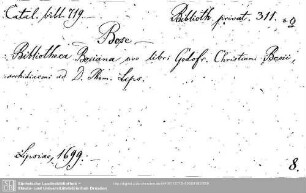 Catal. bibl. 719.
Biblioth. privat. 311.
Bose
Bibliotheca Bosiana sive libri Gotofr. Christiani Bosii,
archidiaconi ad D. Thom. Lips.
Lipsiae, 1699.
8.
Sächsische Landesbibliothek -
Staats- und Universitätsbibliothek Dresden